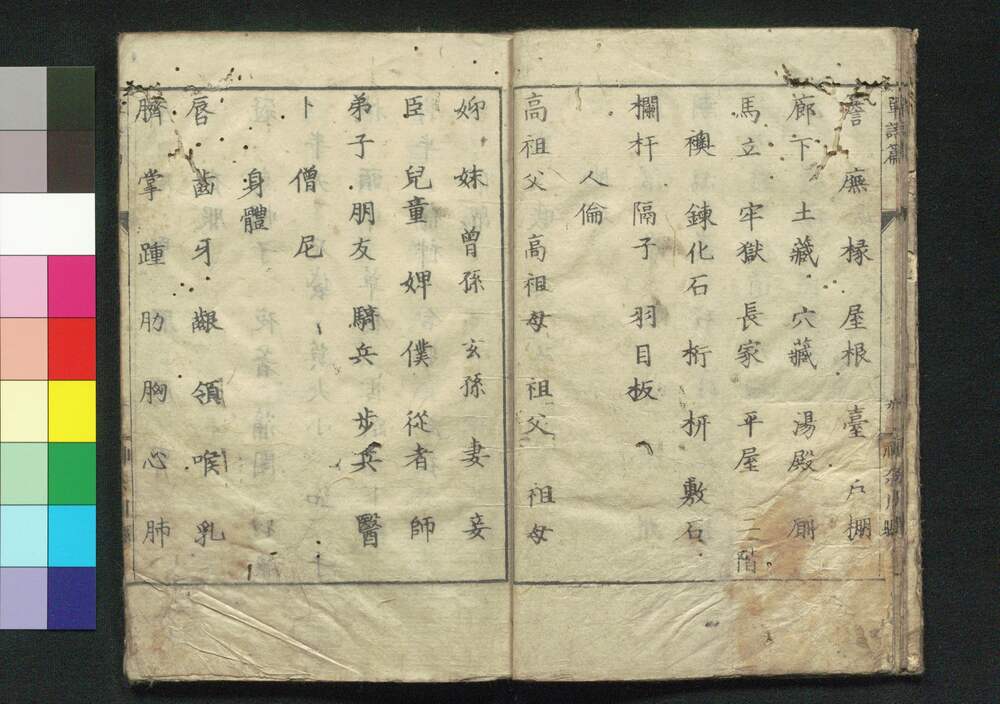 簷 廡 椽 屋根 臺 戶棚
廊下 土藏 穴藏 湯殿 厠
馬立 牢獄 長家 平屋 二階
襖 鍊化石 桁 枅 敷石
欄杆 隔子 羽目板
人倫
高祖父 高祖母 祖父 祖母
妳 妹 曾孫 玄孫 妻 妾
臣 兒童 婢 僕 從者 師
弟子 朋友 騎兵 步兵 醫
卜 僧 尼
身體
唇 齒 牙 齦 頷 喉 乳
臍 掌 踵 肋 胸 心 肺